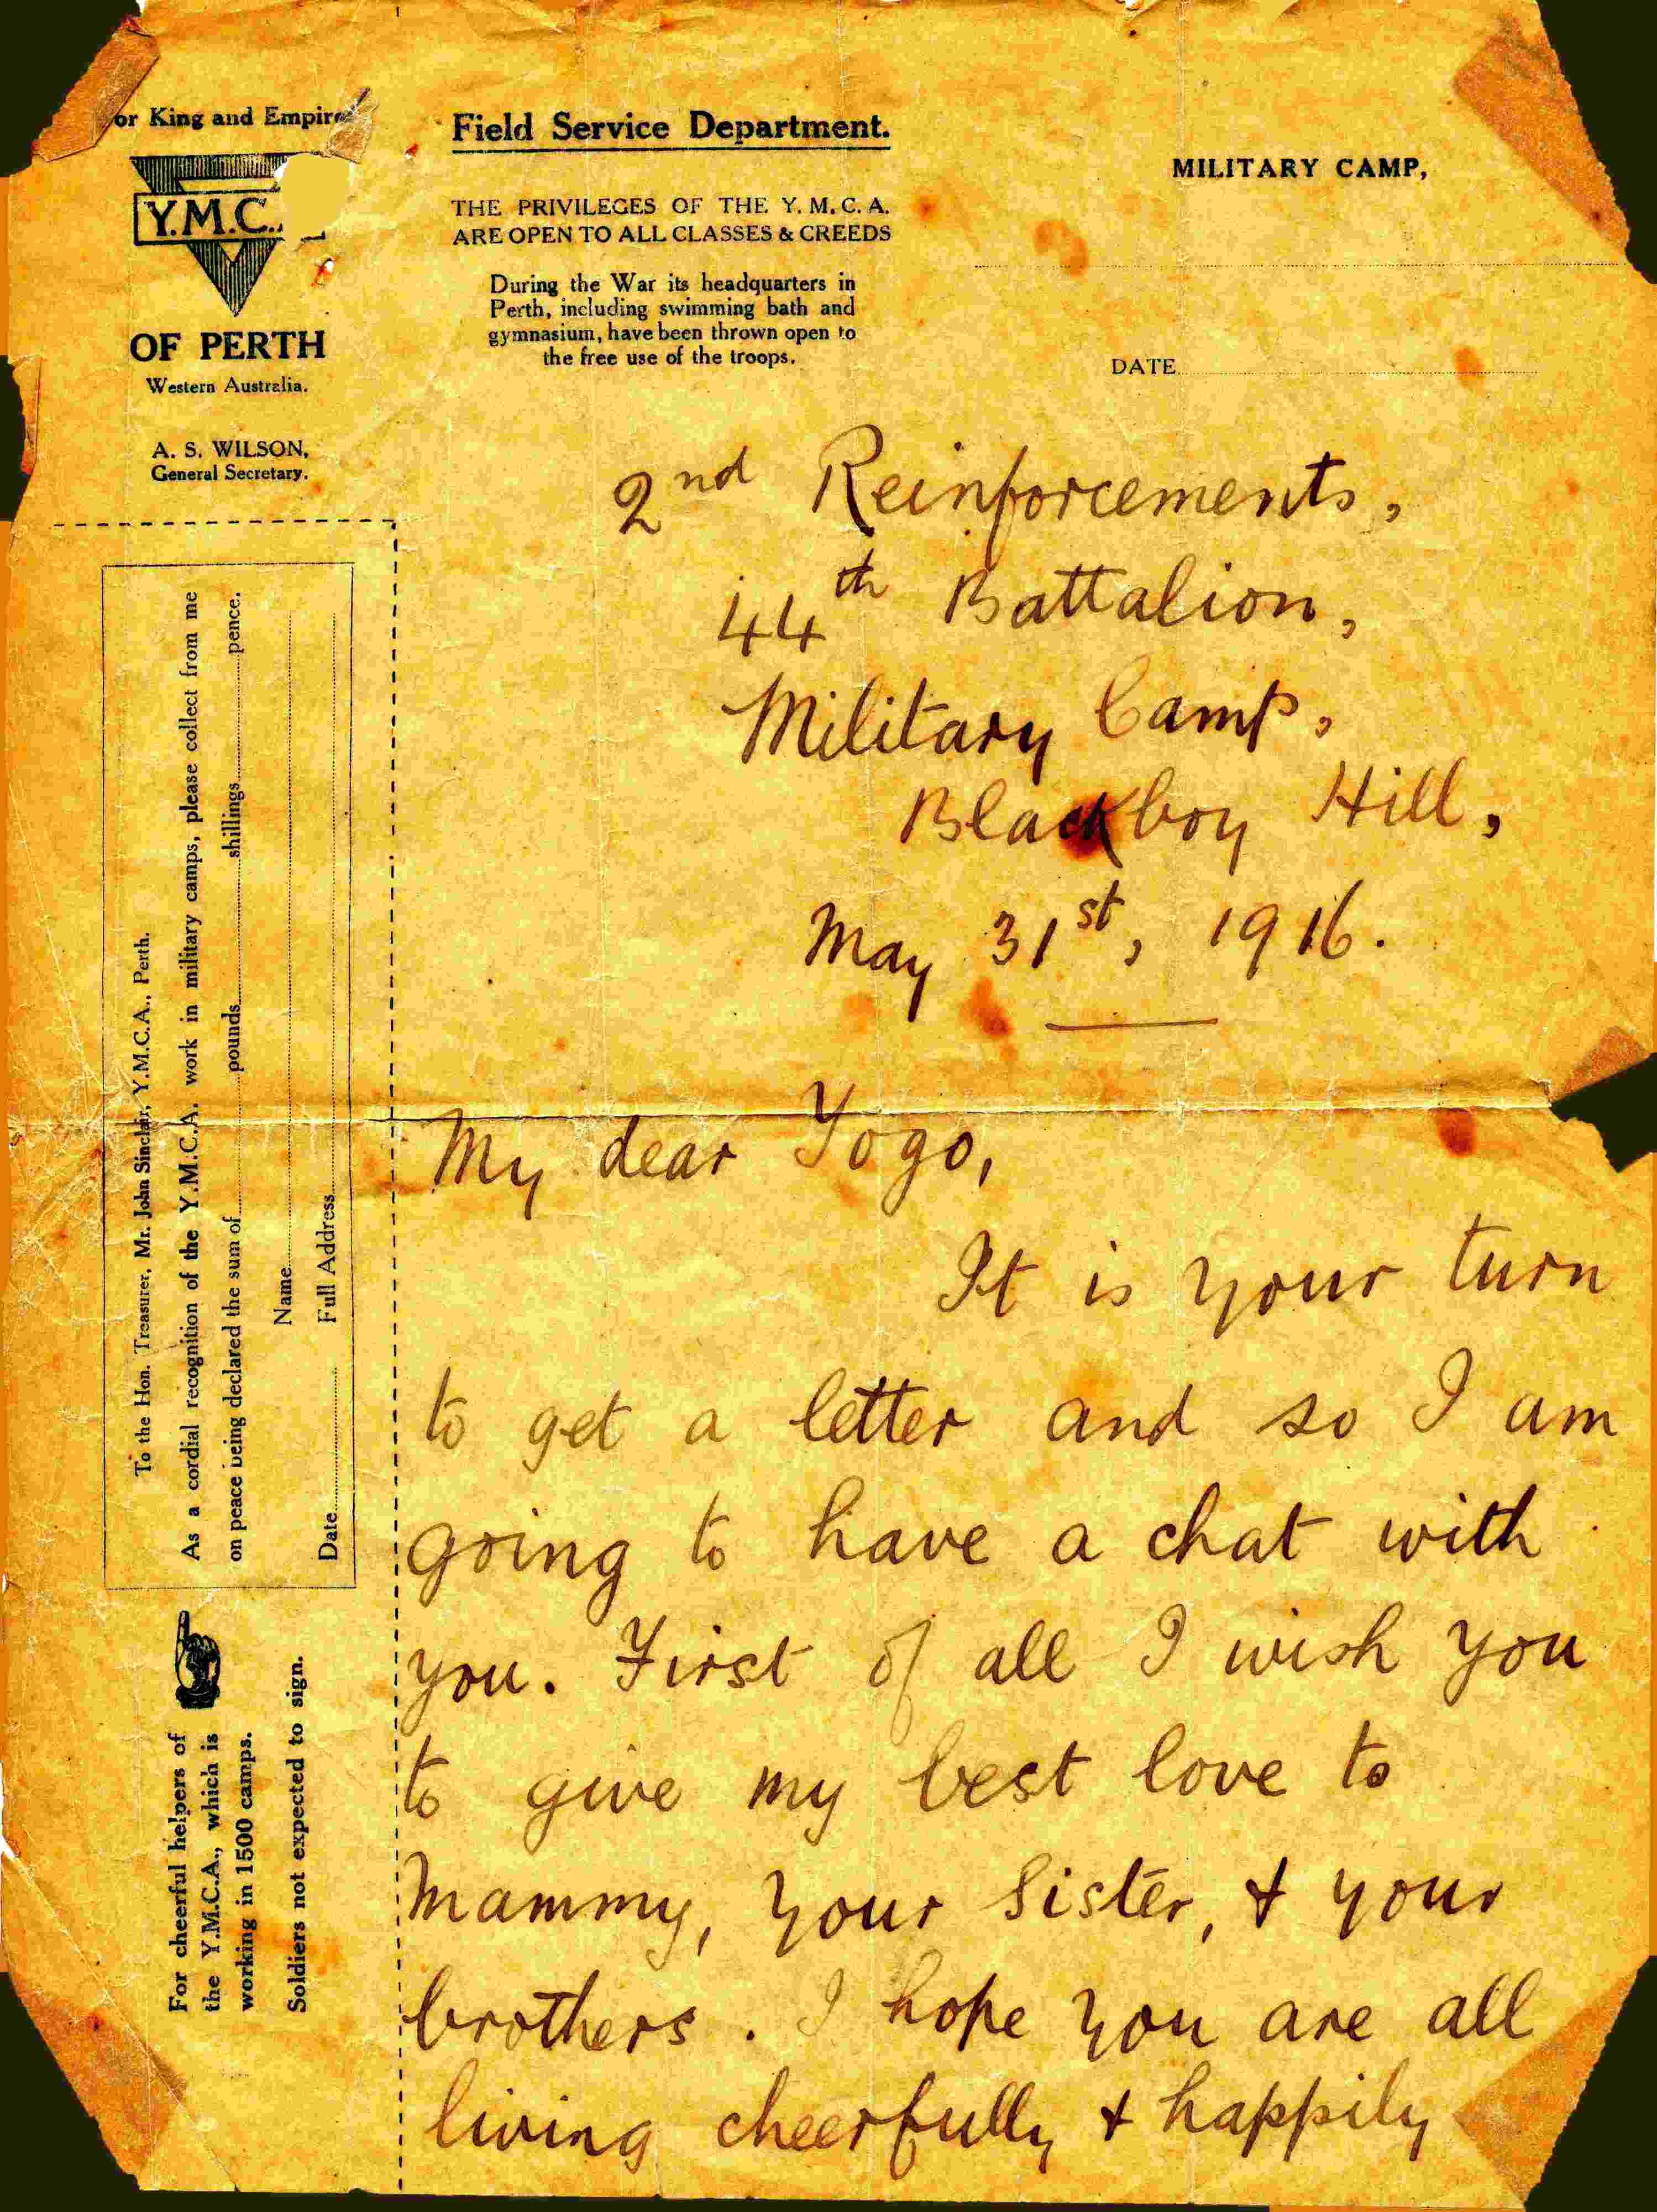 or King and Empire
Y.M.C.
OF PERTH
Western Australia.
A. S. WILSON,
General Secretary.
Field Service Department.
THE PRIVILEGES OF THE Y. M. C. A.
ARE OPEN TO ALL CLASSES & CREEDS
During the War its headquarters in
Perth, including swimming bath and
gymnasium, have been thrown open to
the free use of the troops.
MILITARY CAMP,
DATE
2nd Reinforcements,
44th Battalion,
Military Camp,
Blackboy Hill,
May 31st, 1916.
My dear Yogo,
It is your turn
to get a letter and so I am
going to have a chat with
you. First of all I wish you
to give my best love to
Mammy, your sister, & your
brothers. I hope you are all
living cheerfully & happily
To the Hon. Treasurer, Mr. John Sinclair, Y.M.C.A., Perth.
As a cordial recognition of the Y.M.C.A. work in military camps, please collect from me
on peace being declared the sum of pounds shillings pence.
Name
Date Full Address
For cheerful helpers of
the Y.M.C.A., which is
working in 1500 camps.
Soldiers not expected to sign.